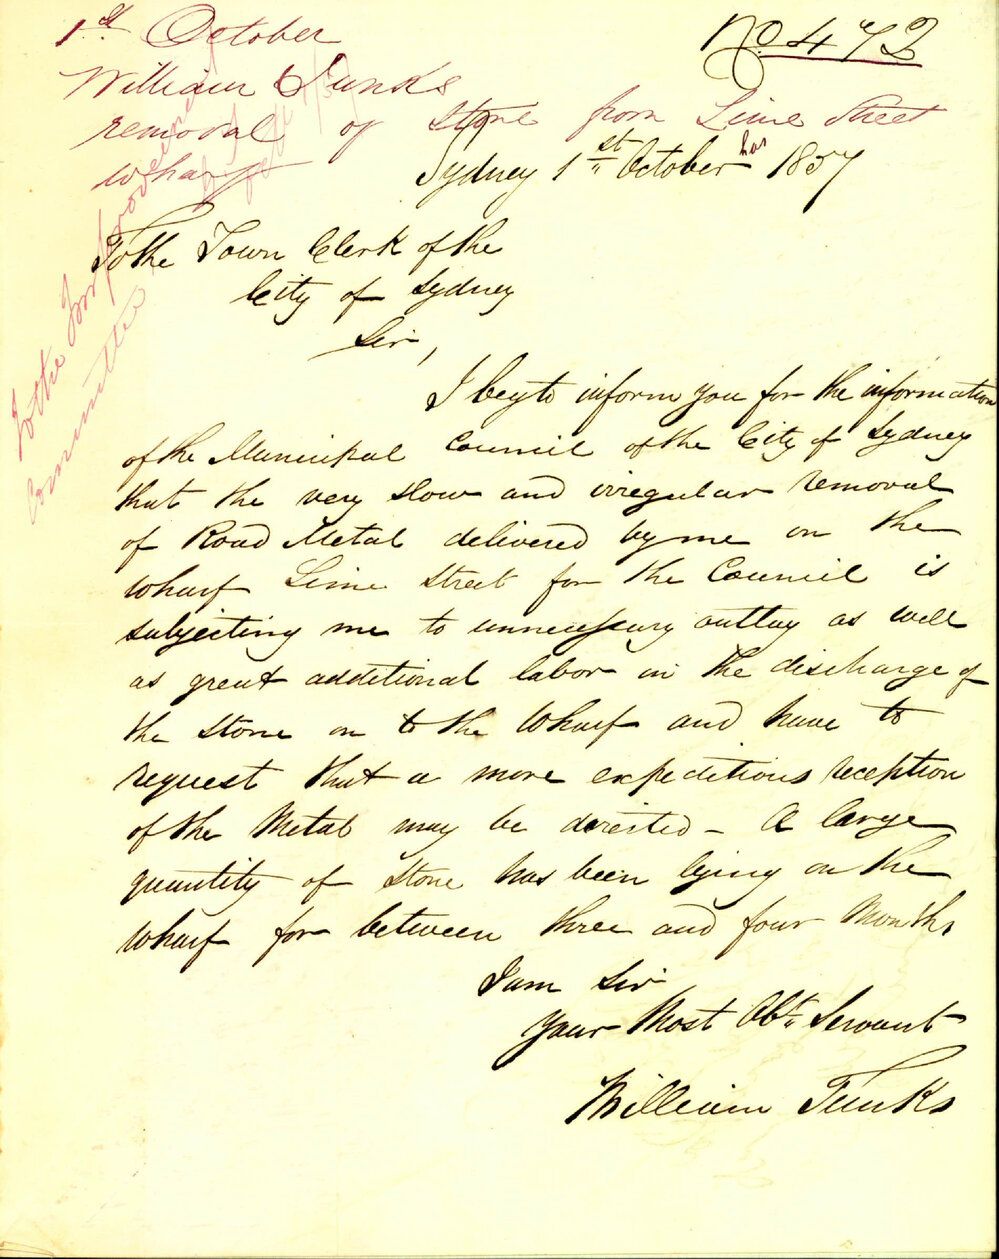 No 472
1st October
William Tunks
removal of Stone from Lime Street
Wharf
To the Improvement
Committee
Sydney 1st October 1857
To the Town Clerk of the
City of Sydney
Sir,
I beg to inform you for the information
of the Municipal Council of the City of Sydney
that the very slow and irregular removal
of Road Metal delivered by me on the
Wharf Lime Street for the Council is
subjecting me to unnecessary outlay as well
as great additional labor in the discharge of
the Stone on to the Wharf and have to
request that a more expeditious reception
of the Metal may be directed - A large
quantity of Stone has been lying on the
Wharf for between three and four Months
I am Sir
Your Most Obt. Servant
William Tunks